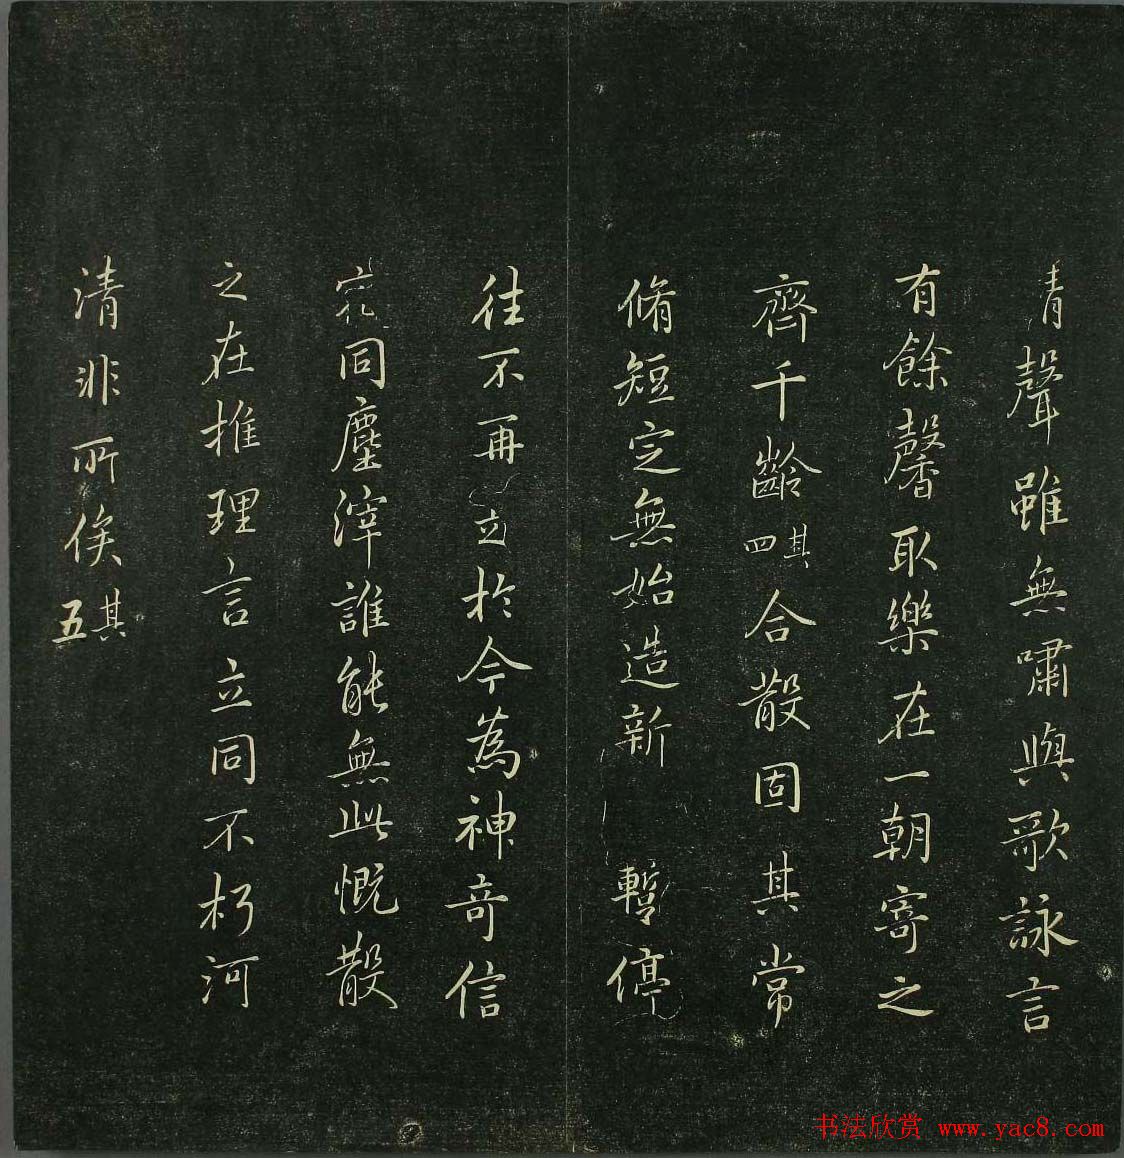 青聲雖無嘯與歌詠言
有餘馨取樂在一朝寄之
齊千齡其四合散固其常
脩短定無始造新暫停
往不再於今為神奇信
同塵滓誰能無此慨散
之在推理言立同不朽河
清非所俟其五
书法欣赏 www.yac8.com